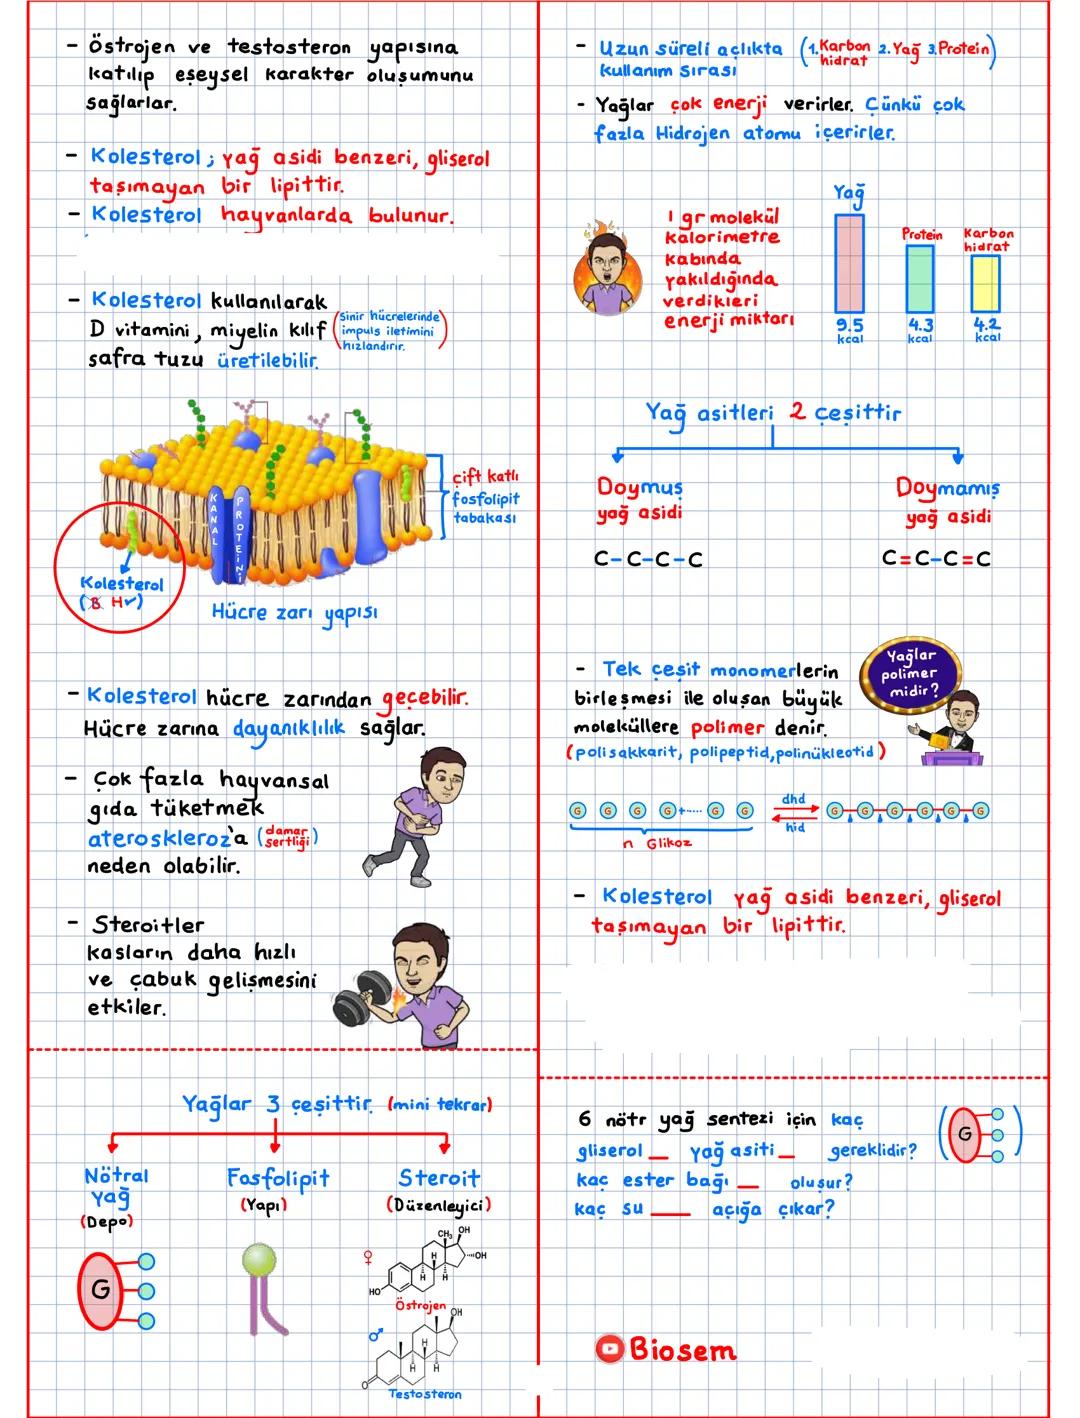 - Östrojen ve testosteron yapısına
katılıp eşeysel karakter oluşumunu
sağlarlar.
- Kolesterol; yağ asidi benzeri, gliserol
taşımayan bir lipittir.
- Kolesterol hayvanlarda bulunur.
- Kolesterol kullanılarak
D vitamini, miyelin kılıf (Sinir hücrelerinde
impuls iletimini
hızlandırır.)
safra tuzu üretilebilir.
çift katlı
fosfolipit
tabakası
KANAL
PROTEİNİ
Kolesterol
(B H✓)
Hücre zarı yapısı
- Kolesterol hücre zarından geçebilir.
Hücre zarına dayanıklılık sağlar.
- Çok fazla hayvansal
gıda tüketmek
ateroskleroz'a (damar
sertliği)
neden olabilir.
- Steroitler
kasların daha hızlı
ve çabuk gelişmesini
etkiler.
Yağlar 3 çeşittir. (mini tekrar)
Nötral
yağ
(Depo)
G
Fosfolipit
(Yapı)
Steroit
(Düzenleyici)
♀
CH₃
OH
OH
H
H
H
HO
Östrojen
♂
OH
H
H
H
O
Testosteron
- Uzun süreli açlıkta (1.Karbon
hidrat 2.Yağ 3.Protein)
kullanım sırası
- Yağlar çok enerji verirler. Çünkü çok
fazla Hidrojen atomu içerirler.
1 gr molekül
kalorimetre
kabında
yakıldığında
verdikleri
enerji miktarı
Yağ
Protein
Karbon
hidrat
9.5
kcal
4.3
kcal
4.2
kcal
Yağ asitleri 2 çeşittir
Doymuş
yağ asidi
Doymamış
yağ asidi
C-C-C-C
C=C-C=C
- Tek çeşit monomerlerin
birleşmesi ile oluşan büyük
moleküllere polimer denir.
(polisakkarit, polipeptid,polinükleotid)
Yağlar
polimer
midir?
G G G G+····· G G
dhd
hid
G-G-G-G-G-G
n Glikoz
- Kolesterol yağ asidi benzeri, gliserol
taşımayan bir lipittir.
6 nötr yağ sentezi için kaç
gliserol _ yağ asiti _ gereklidir?
kaç ester bağı _ oluşur?
kaç su __ açığa çıkar?
G
Biosem